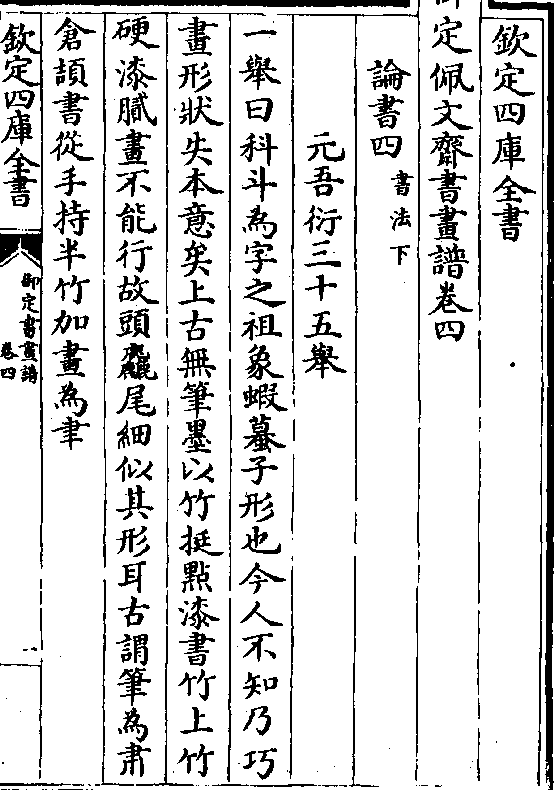 欽定四庫全書
御定佩文齋書畫譜卷四
論書四 書法下
元吾衍三十五舉
一舉曰科斗為字之祖象蝦蟇子形也今人不知乃巧
畫形狀失本意矣上古無筆墨以竹挺點漆書竹上竹
硬漆膩畫不能行故頭麤尾細似其形耳古謂筆為肃
倉頡書從手持半竹加畫為聿
欽定四庫全書
御定書畫譜
卷四
一